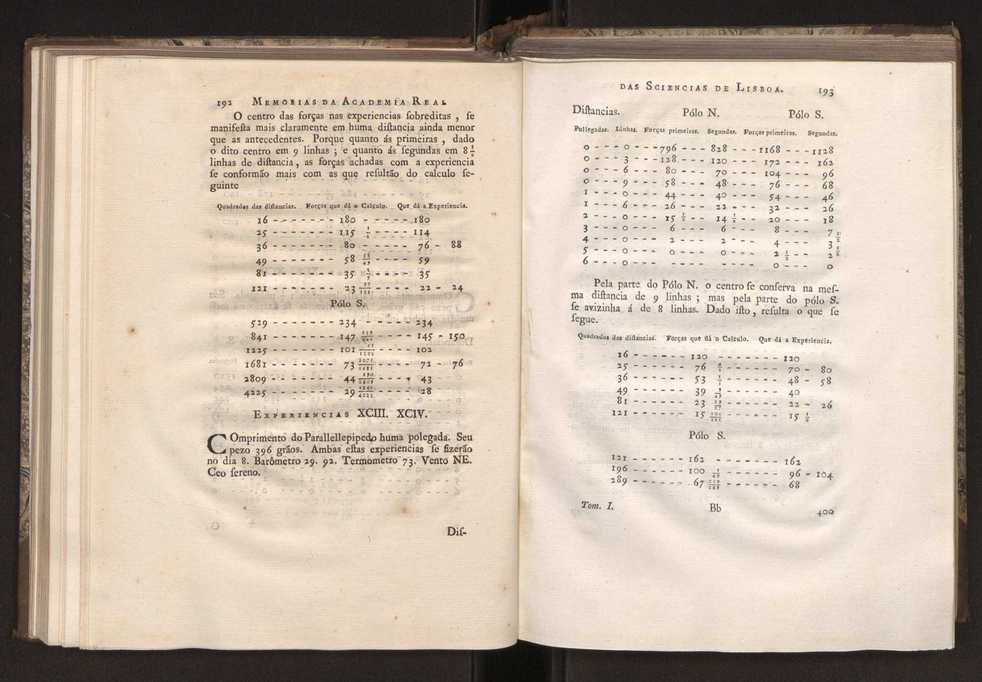 192 MEMORIAS DA ACADEMIA REAL
O centro das forças nas experiencias ſobreditas , ſe
manifeſta mais claramente em huma diſtancia ainda menor
que as antecedentes. Porque quanto ás primeiras , dado
o dito centro em 9 linhas ; e quanto ás ſegundas em 8 1/2
linhas de diſtancia , as forças achadas com a experiencia
ſe conformão mais com as que reſultão do calculo ſe-
guinte
Quadradas das diſtancias. Forças que dá o Calculo. Que dá a Experiencia.
16 - - - - - - - 180 - - - - - 180
25 - - - - - - - 115 1/5 - - - - 114
36 - - - - - - - 80 - - - - - 76 - 88
49 - - - - - - - 58 - - - - 59
81 - - - - - - - 35 - - - - 35
121 - - - - - - - 23 - - - - 22 - 24
Pólo S.
529 - - - - - - - 234 - - - - - 234
841 - - - - - - - 147 - - - - 145 - 150
1225 - - - - - - - 101 - - - - 102
1681 - - - - - - - 73 - - - - 72 - 76
2809 - - - - - - - 44 - - - - 43
4225 - - - - - - - 29 - - - - 28
EXPERIENCIAS XCIII. XCIV.
COmprimento do Parallellepipedo huma polegada. Seu
pezo 396 grãos. Ambas eſtas experiencias ſe fizerão
no dia 8. Barómetro 29. 92. Termometro 73. Vento NE.
Ceo ſereno.
Diſ-
DAS SCIENCIAS DE LISBOA. 193
Diſtancias. Pólo N. Pólo S.
Pollegadas. Linhas. Forças primeiras. Segundas. Forças primeiras. Segundas.
0 - - - 0 - - - 796 - - - 828 - - - 1168 - - - 1128
0 - - - 3 - - - 128 - - - 120 - - - 172 - - - 162
0 - - - 6 - - - 80 - - - 70 - - - 104 - - - 96
0 - - - 9 - - - 58 - - - 48 - - - 76 - - - 68
1 - - - 0 - - - 44 - - - 40 - - - 54 - - - 46
1 - - - 6 - - - 26 - - - 22 - - - 32 - - - 26
2 - - - 0 - - - 15 1/2 - - 14 1/2 - - 20 - - - 18
3 - - - 0 - - - 6 - - - 6 - - - 8 - - - 7 1/2
4 - - - 0 - - - 2 - - - 2 - - - 4 - - - 3
5 - - - 0 - - - 0 - - - 0 - - - 2 1/2 - - 2
6 - - - 0 - - - 0 - - - 0
Pela parte do Pólo N. o centro ſe conſerva na meſ-
ma diſtancia de 9 linhas ; mas pela parte do pólo S.
ſe avizinha á de 8 linhas. Dado iſto , reſulta o que ſe
ſegue.
Quadradas das diſtancias. Forças que dá o Calculo. Que dá a Experiencia.
16 - - - - - - 120 - - - - - - - 120
25 - - - - - - 76 - - - - - - 70 - 80
36 - - - - - - 53 1/3 - - - - - - 48 - 58
49 - - - - - - 39 - - - - - - 40
81 - - - - - - 23 - - - - - - 22 - 26
121 - - - - - - 15 - - - - - - 15 1/2
Pólo S.
121 - - - - - - 162 - - - - - - - 162
196 - - - - - - 100 - - - - - - 96 - 104
289 - - - - - - 67 - - - - - - 68
Tom. I. Bb 400